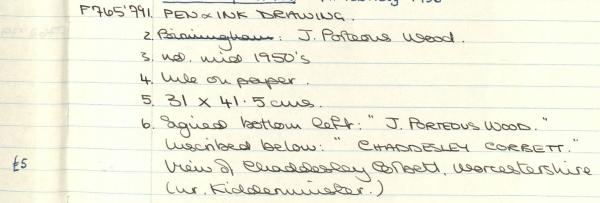 F765'79 1. PEN & INK DRAWING.
2. Birmingham: J. Porteous Wood.
3. nd. mid 1950's
4. Ink on paper.
5. 31 x 41.5 cms.
6. Signed bottom left: "J. PORTEOUS WOOD."
Inscribed below: "CHADDESLEY CORBETT."
£5 View of Chaddesley Corbett, Worcestershire
(nr. Kidderminster.)